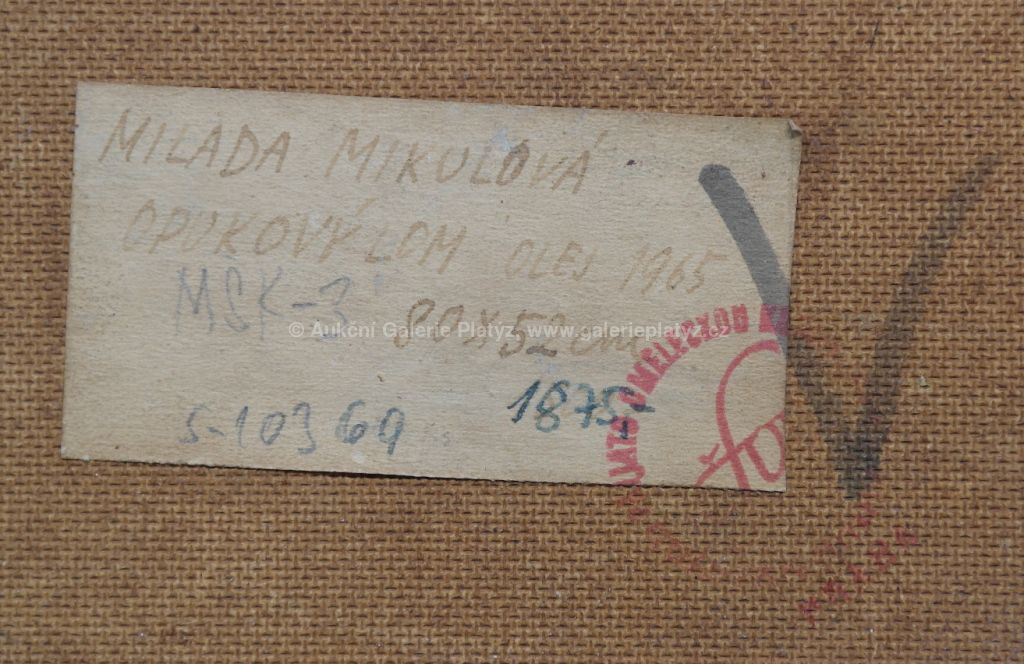 MILADA MIKULOVÁ
OPUKOVÝ LOM OLEJ 1965
MŠK-3
80x52cm
© Aukční Galerie Platýz, www.galerieplatyz.cz
1875,-
S-103 69
PŘIJATO UMĚLECKOU